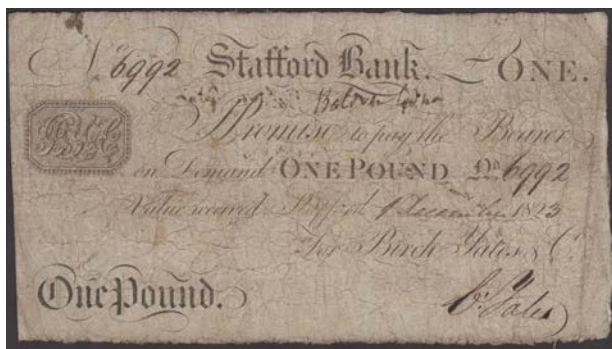 No. 6992 Stafford Bank. ONE.
Promise to pay the Bearer
on Demand ONE POUND No. 6992
Value received Stafford 1 December 1823
For Birch Yates & Co.
One Pound.
Yates